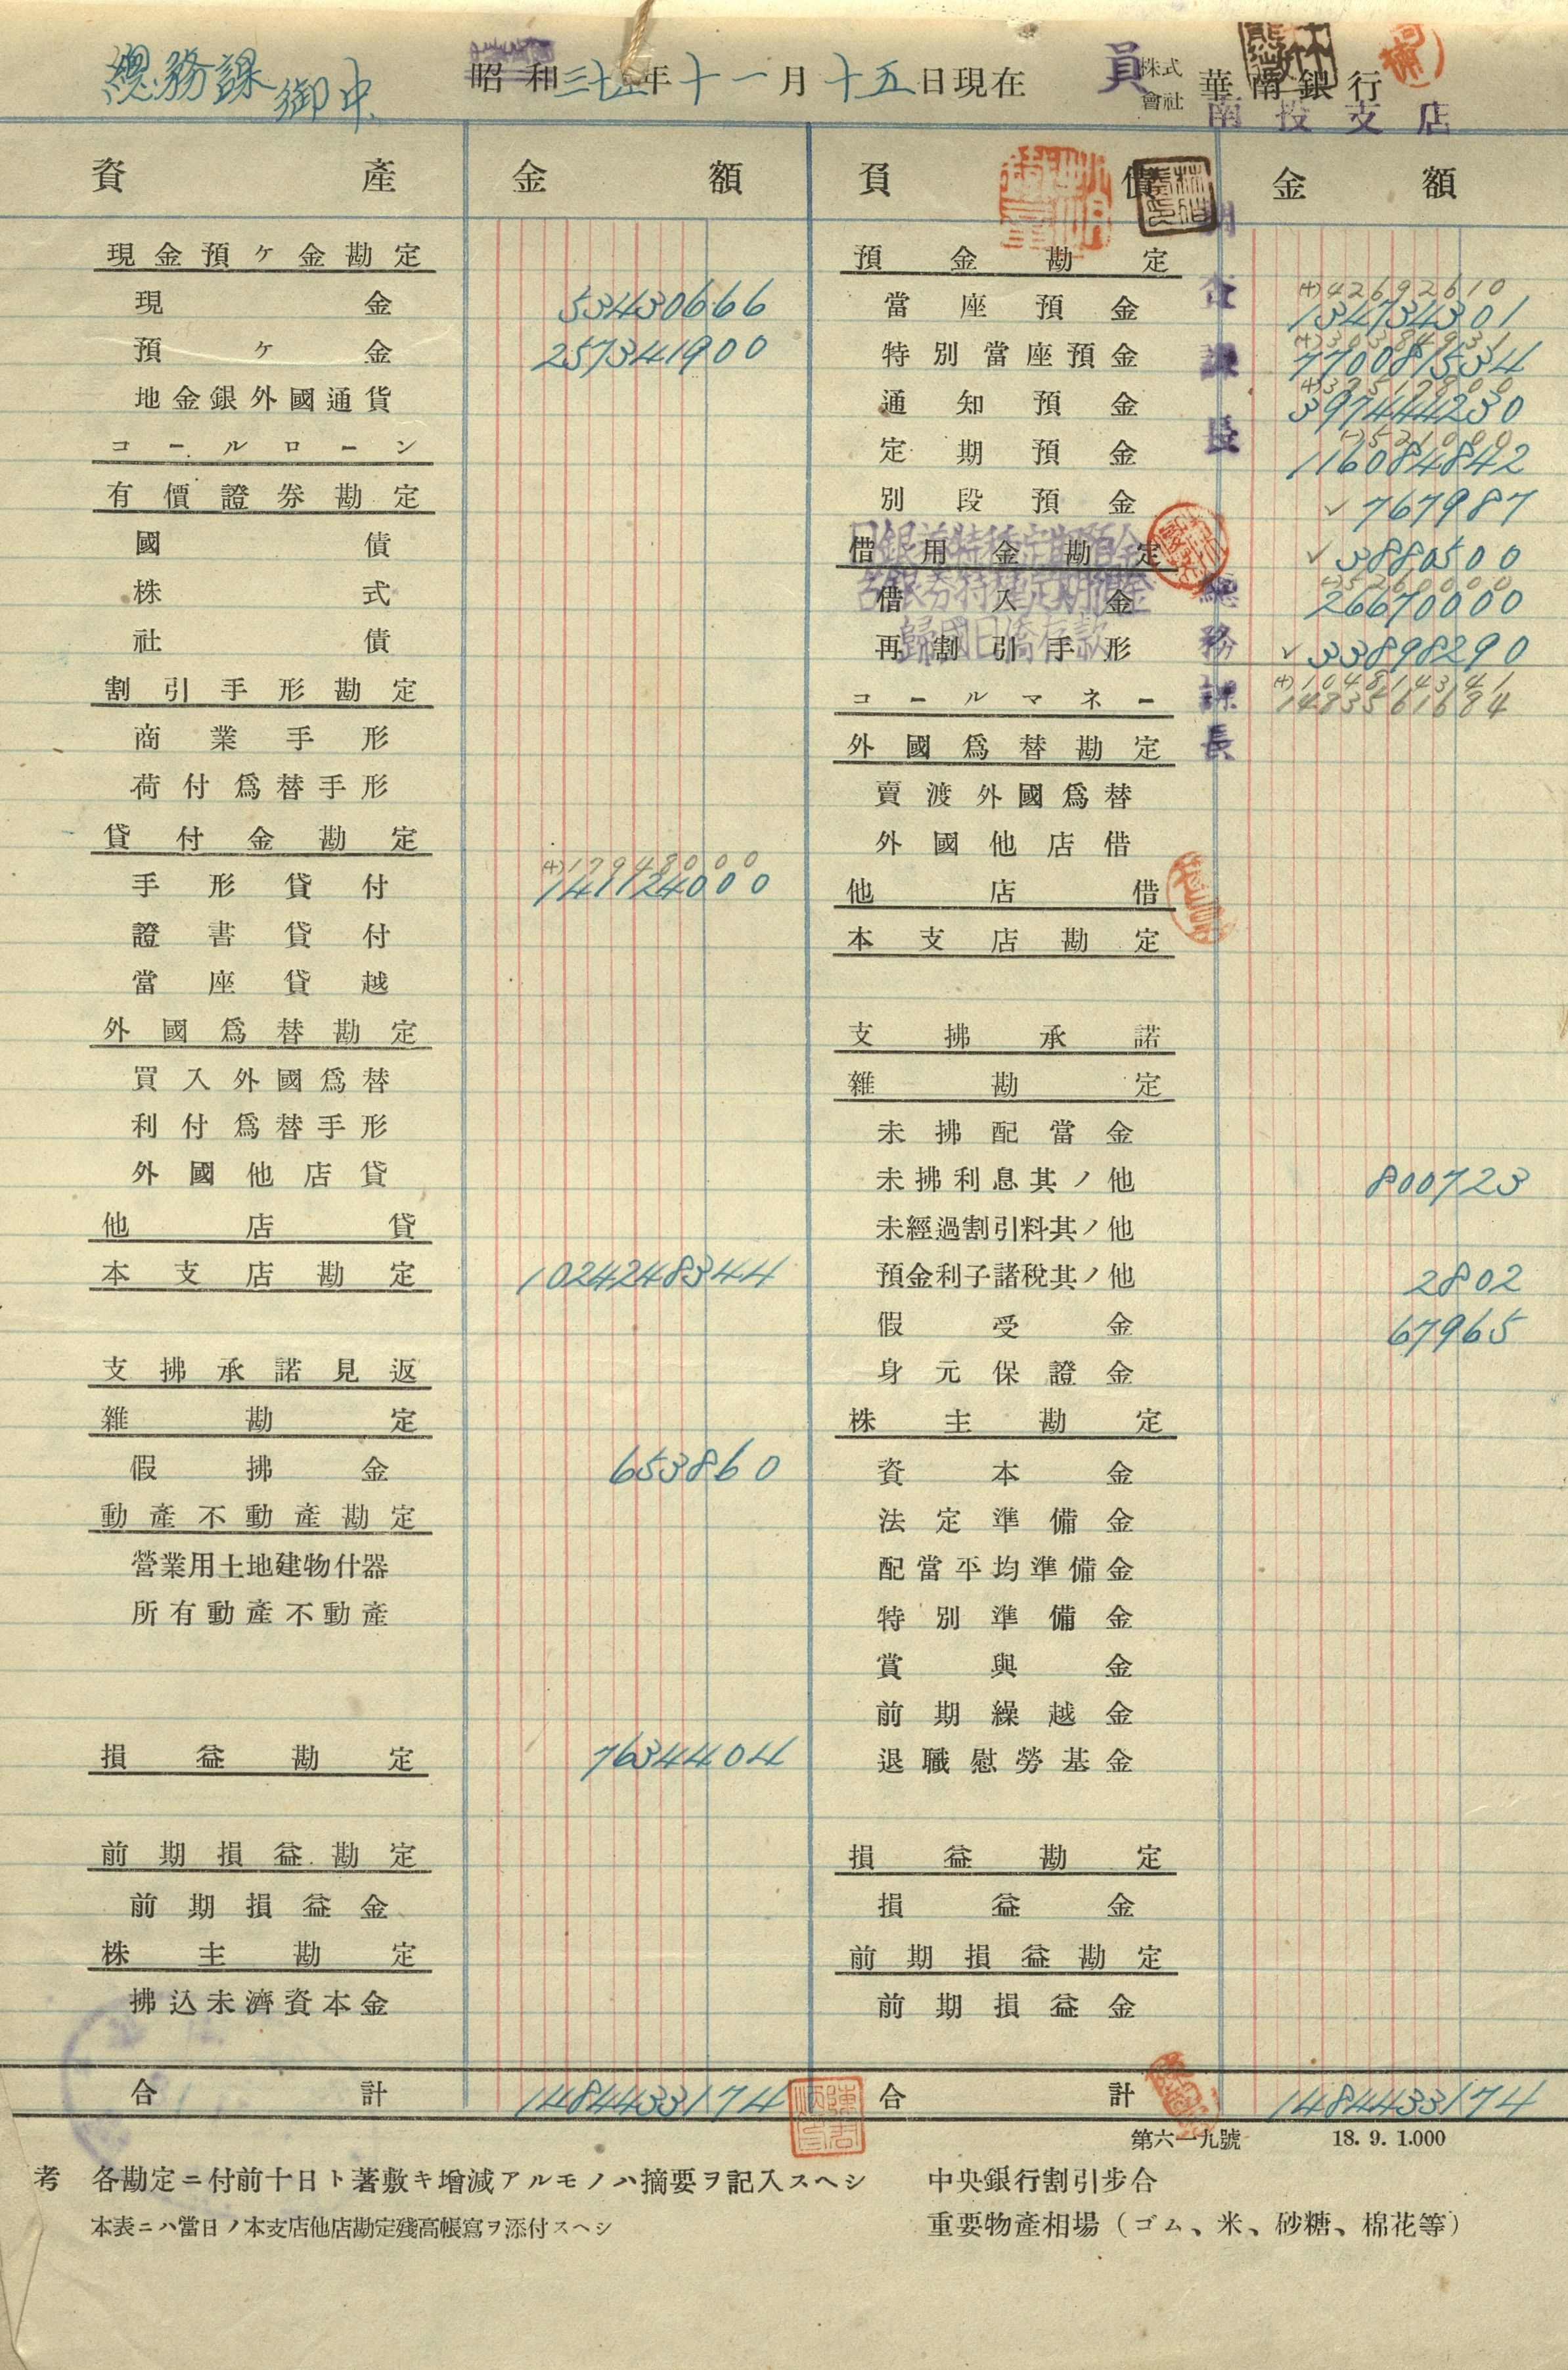 總務課 御中
昭和三十五年十一月十五日現在
株式會社 華南銀行
南投支店
資產 金額 負債 金額
現金預ケ金勘定 預金勘定
(+)42692610
現金 53430666 當座預金 134734301
(+)30384931
預ケ金 257341900 特別當座預金 770081534
(+)37517800
地金銀外國通貨 通知預金 397444230
(-)521000
コールローン 定期預金 116084842
有價證券勘定 別段預金 ✓767987
日銀券特種定期預金
國債 借用金勘定 ✓3880500
台銀券特種定期預金 (-)5260000
株式 借入金 26670000
歸國日僑存款
社債 再割引手形 ✓33898290
(+)104814341
割引手形勘定 コールマネー 1483561684
商業手形 外國爲替勘定
荷付爲替手形 賣渡外國爲替
貸付金勘定 外國他店借
(+)17948000
手形貸付 141124000 他店借
證書貸付 本支店勘定
當座貸越
外國爲替勘定 支拂承諾
買入外國爲替 雜勘定
利付爲替手形 未拂配當金
外國他店貸 未拂利息其ノ他 800723
他店貸 未經過割引料其ノ他
本支店勘定 1024248344 預金利子諸稅其ノ他 2802
假受金 67965
支拂承諾見返 身元保證金
雜勘定 株主勘定
假拂金 653860 資本金
動產不動產勘定 法定準備金
營業用土地建物什器 配當平均準備金
所有動產不動產 特別準備金
賞與金
前期繰越金
損益勘定 7634404 退職慰勞基金
前期損益勘定 損益勘定
前期損益金 損益金
株主勘定 前期損益勘定
拂込未濟資本金 前期損益金
合計 1484433174 合計 1484433174
第六一九號 18. 9. 1.000
考 各勘定ニ付前十日ト著敷キ增減アルモノハ摘要ヲ記入スヘシ 中央銀行割引步合
本表ニハ當日ノ本支店他店勘定殘高帳寫ヲ添付スヘシ 重要物產相場（ゴム、米、砂糖、棉花等）
總務課長